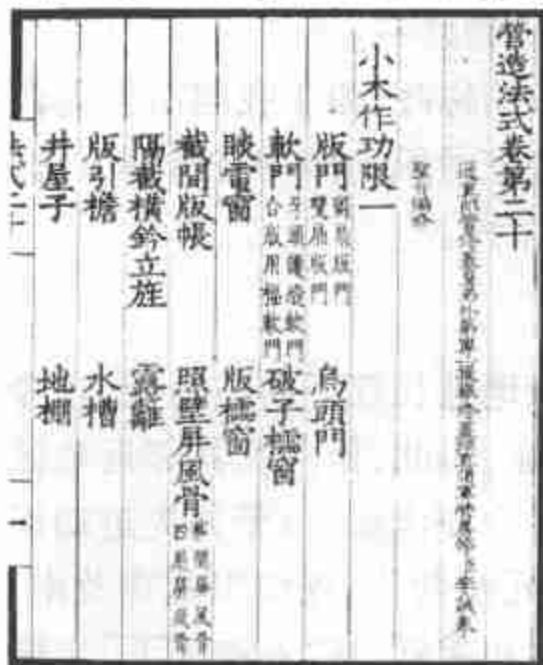 營造法式卷第二十
通直郎管修蓋皇弟外第專一提舉修蓋班直諸軍營房等臣李誡奉
聖旨編修
小木作功限一
版門獨扇版門 雙扇版門 烏頭門
軟門牙頭護縫軟門 合版用楅軟門 破子櫺窗
睒電窗 版櫺窗
截間版帳 照壁屏風骨截間屏風骨 四扇屏風骨
隔截橫鈐立旌 露籬
版引檐 水槽
井屋子 地棚
法式二十 一